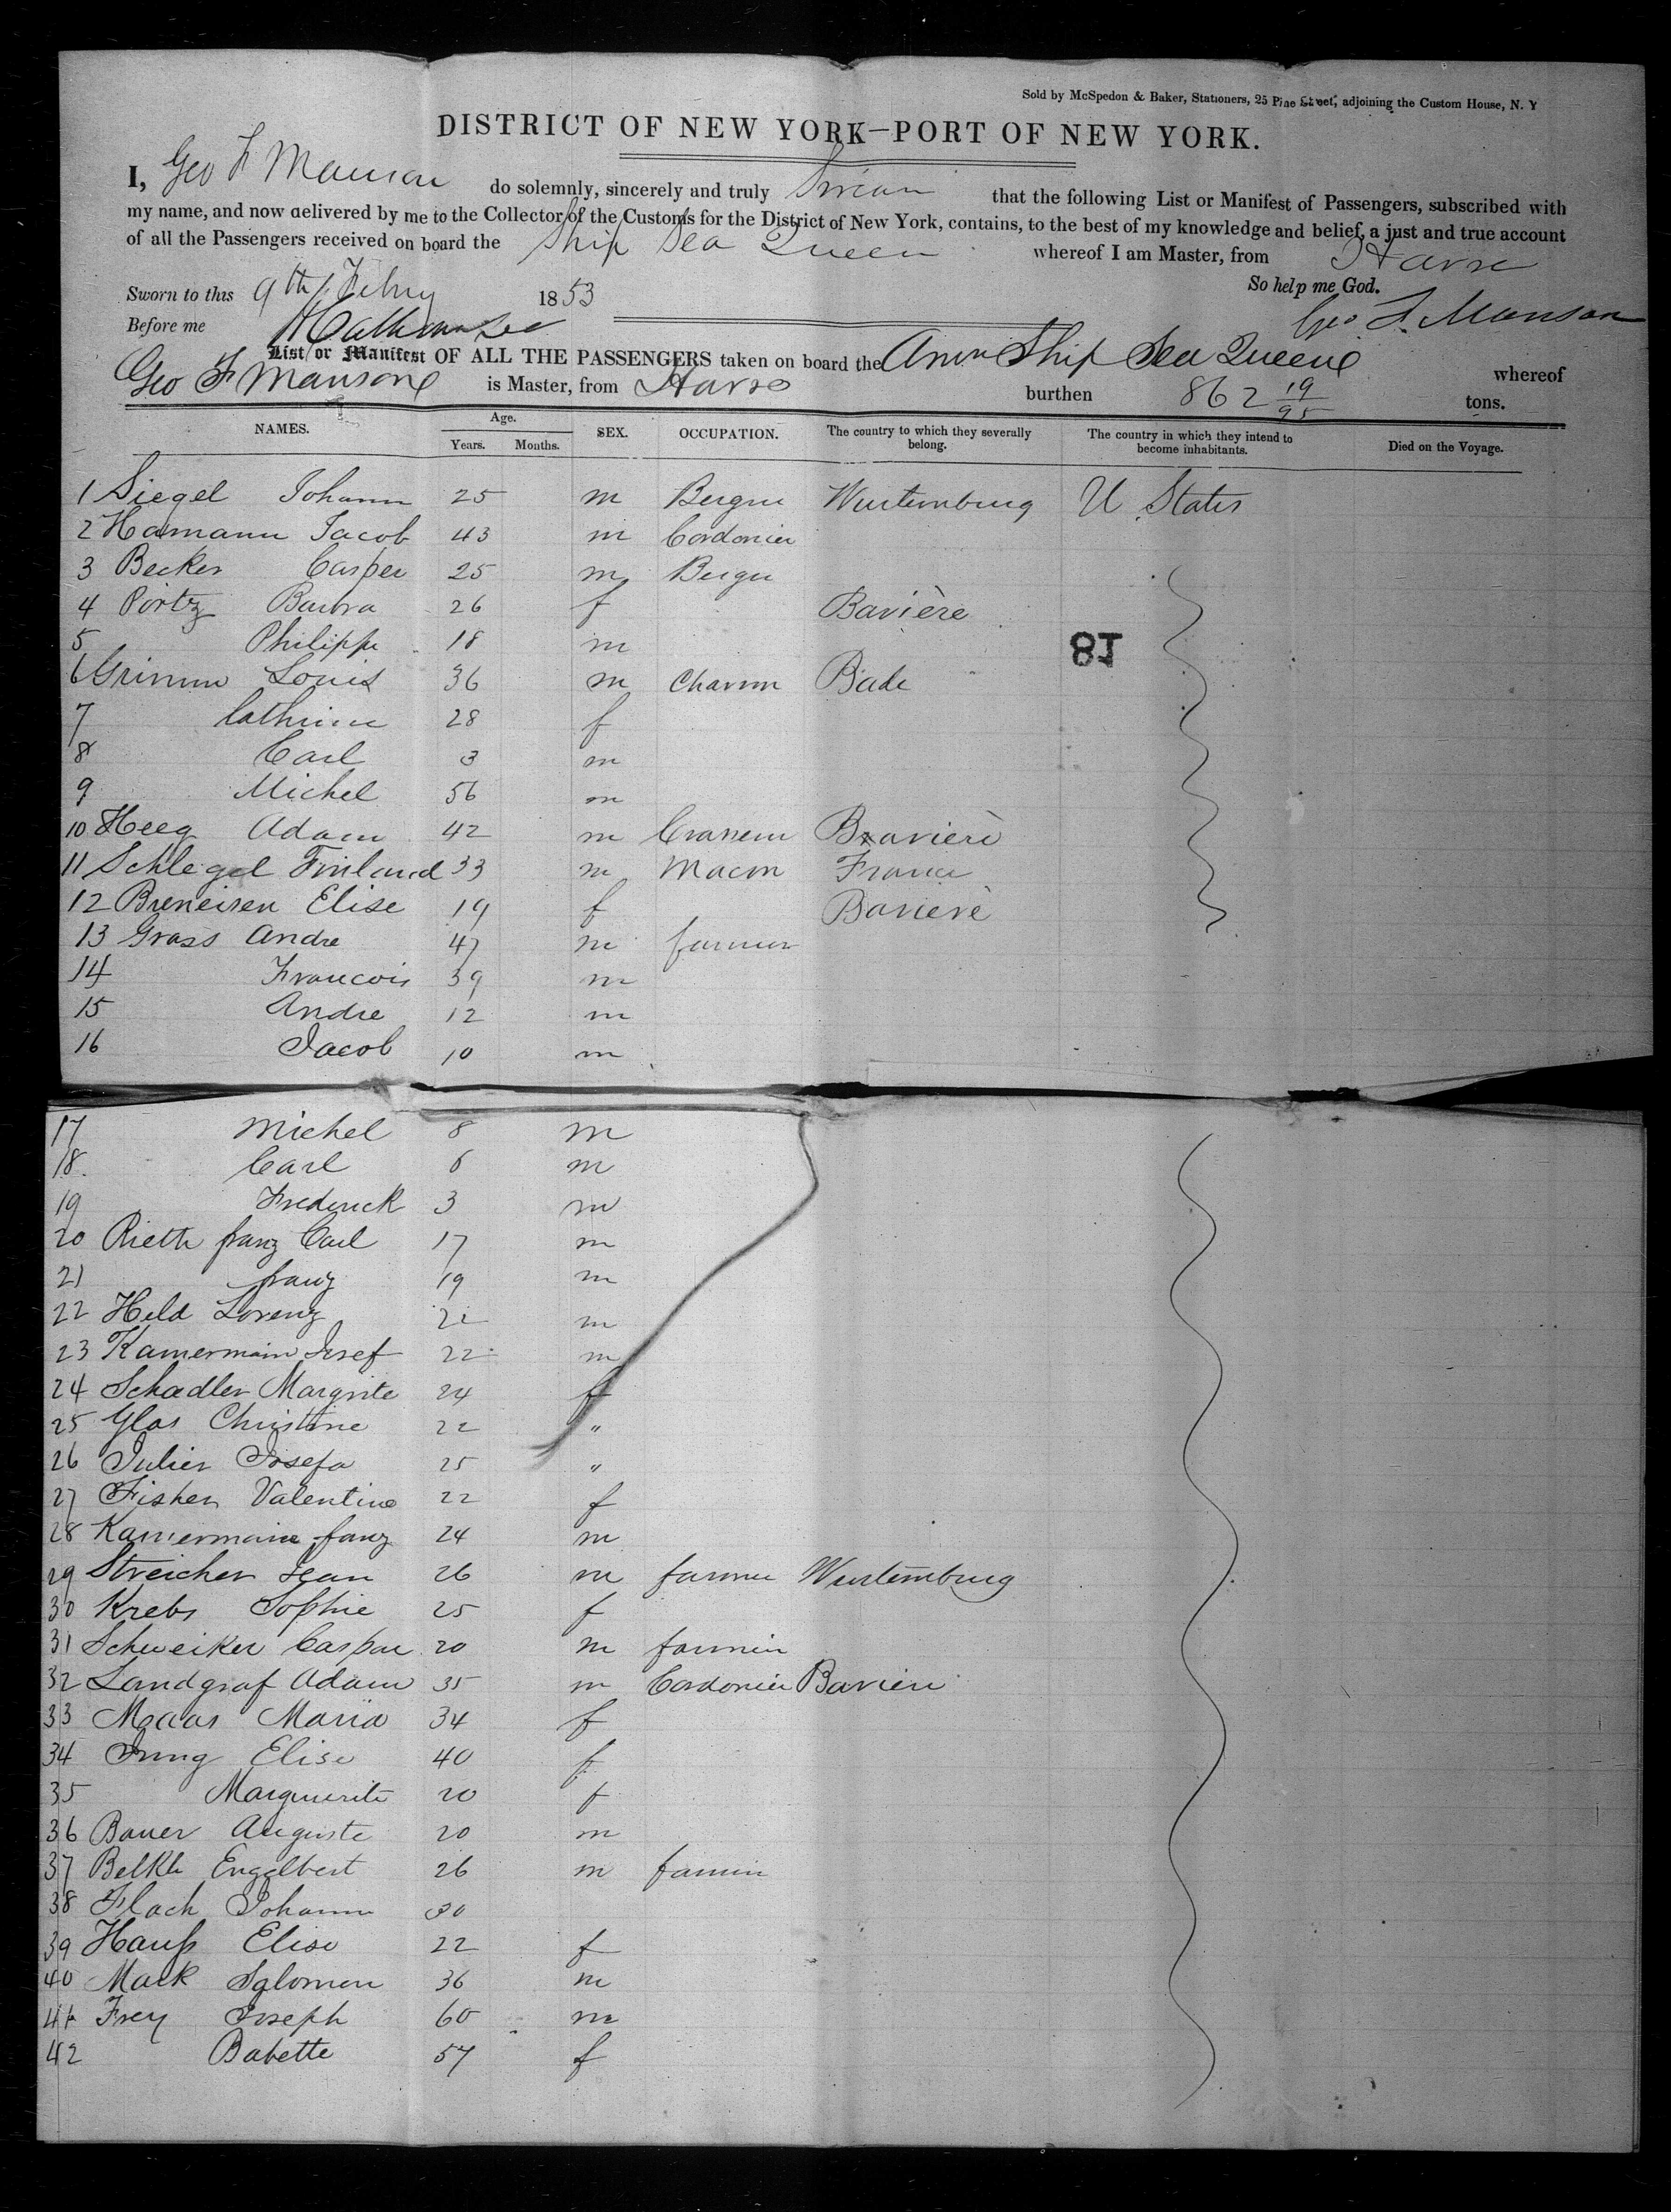 Sold by McSpedon & Baker, Stationers, 25 Pine Street, adjoining the Custom House, N. Y
DISTRICT OF NEW YORK—PORT OF NEW YORK.
I, Geo F Manson do solemnly, sincerely and truly Swear that the following List or Manifest of Passengers, subscribed with
my name, and now delivered by me to the Collector of the Customs for the District of New York, contains, to the best of my knowledge and belief, a just and true account
of all the Passengers received on board the Ship Sea Queen whereof I am Master, from Havre
So help me God.
Sworn to this 9th Febry 1853
Geo F. Manson
Before me
List or Manifest OF ALL THE PASSENGERS taken on board the Amn Ship Sea Queene whereof
Geo F Manson is Master, from Havre burthen 862 19/95 tons.
NAMES. Age. Years. Months. SEX. OCCUPATION. The country to which they severally belong. The country in which they intend to become inhabitants. Died on the Voyage.
1 Siegel Johann 25 m Wurtemburg U States
2 Hamann Jacob 43 m Cordonier
3 Becker Casper 25 m
4 Portz Barbra 26 f Bavière
5 Philippe 18 m
81
6 Grimm Louis 36 m Charron Bade
7 Cathrine 28 f
8 Carl 3 m
9 Michel 56 m
10 Heeg Adam 42 m Bravierè
11 Schlegel 33 m Macon France
12 Breneisen Elise 19 f Bavierè
13 Grass Andre 47 m farmer
14 Francois 39 m
15 Andre 12 m
16 Jacob 10 m
17 Michel 8 m
18 Carl 6 m
19 Frederick 3 m
20 Rieth franz Carl 17 m
21 franz 19 m
22 Held Lorenz m
23 Kamermain Josef 22 m
24 Schadler Margrite 24 f
25 Glas Christine 22 "
26 Julier Josefa 25 "
27 Fisher Valentine 22 f
28 Kamermaine franz 24 m
29 Streicher Jean 26 m farmer Wurtemburg
30 Krebs Sophie 25 f
31 Schweiker Caspar 20 m farmer
32 Landgraf Adam 35 m Cordonier Baviere
33 Maas Maria 34 f
34 Jung Elise 40 f
35 Marguerite 20 f
36 Bauer Auguste 20 m
37 Belkh Engelbert 26 m farmer
38 Flach Johann 30
39 Hauß Elise 22 f
40 Mack Salomon 36 m
41 Frey Joseph 60 m
42 Babette 57 f